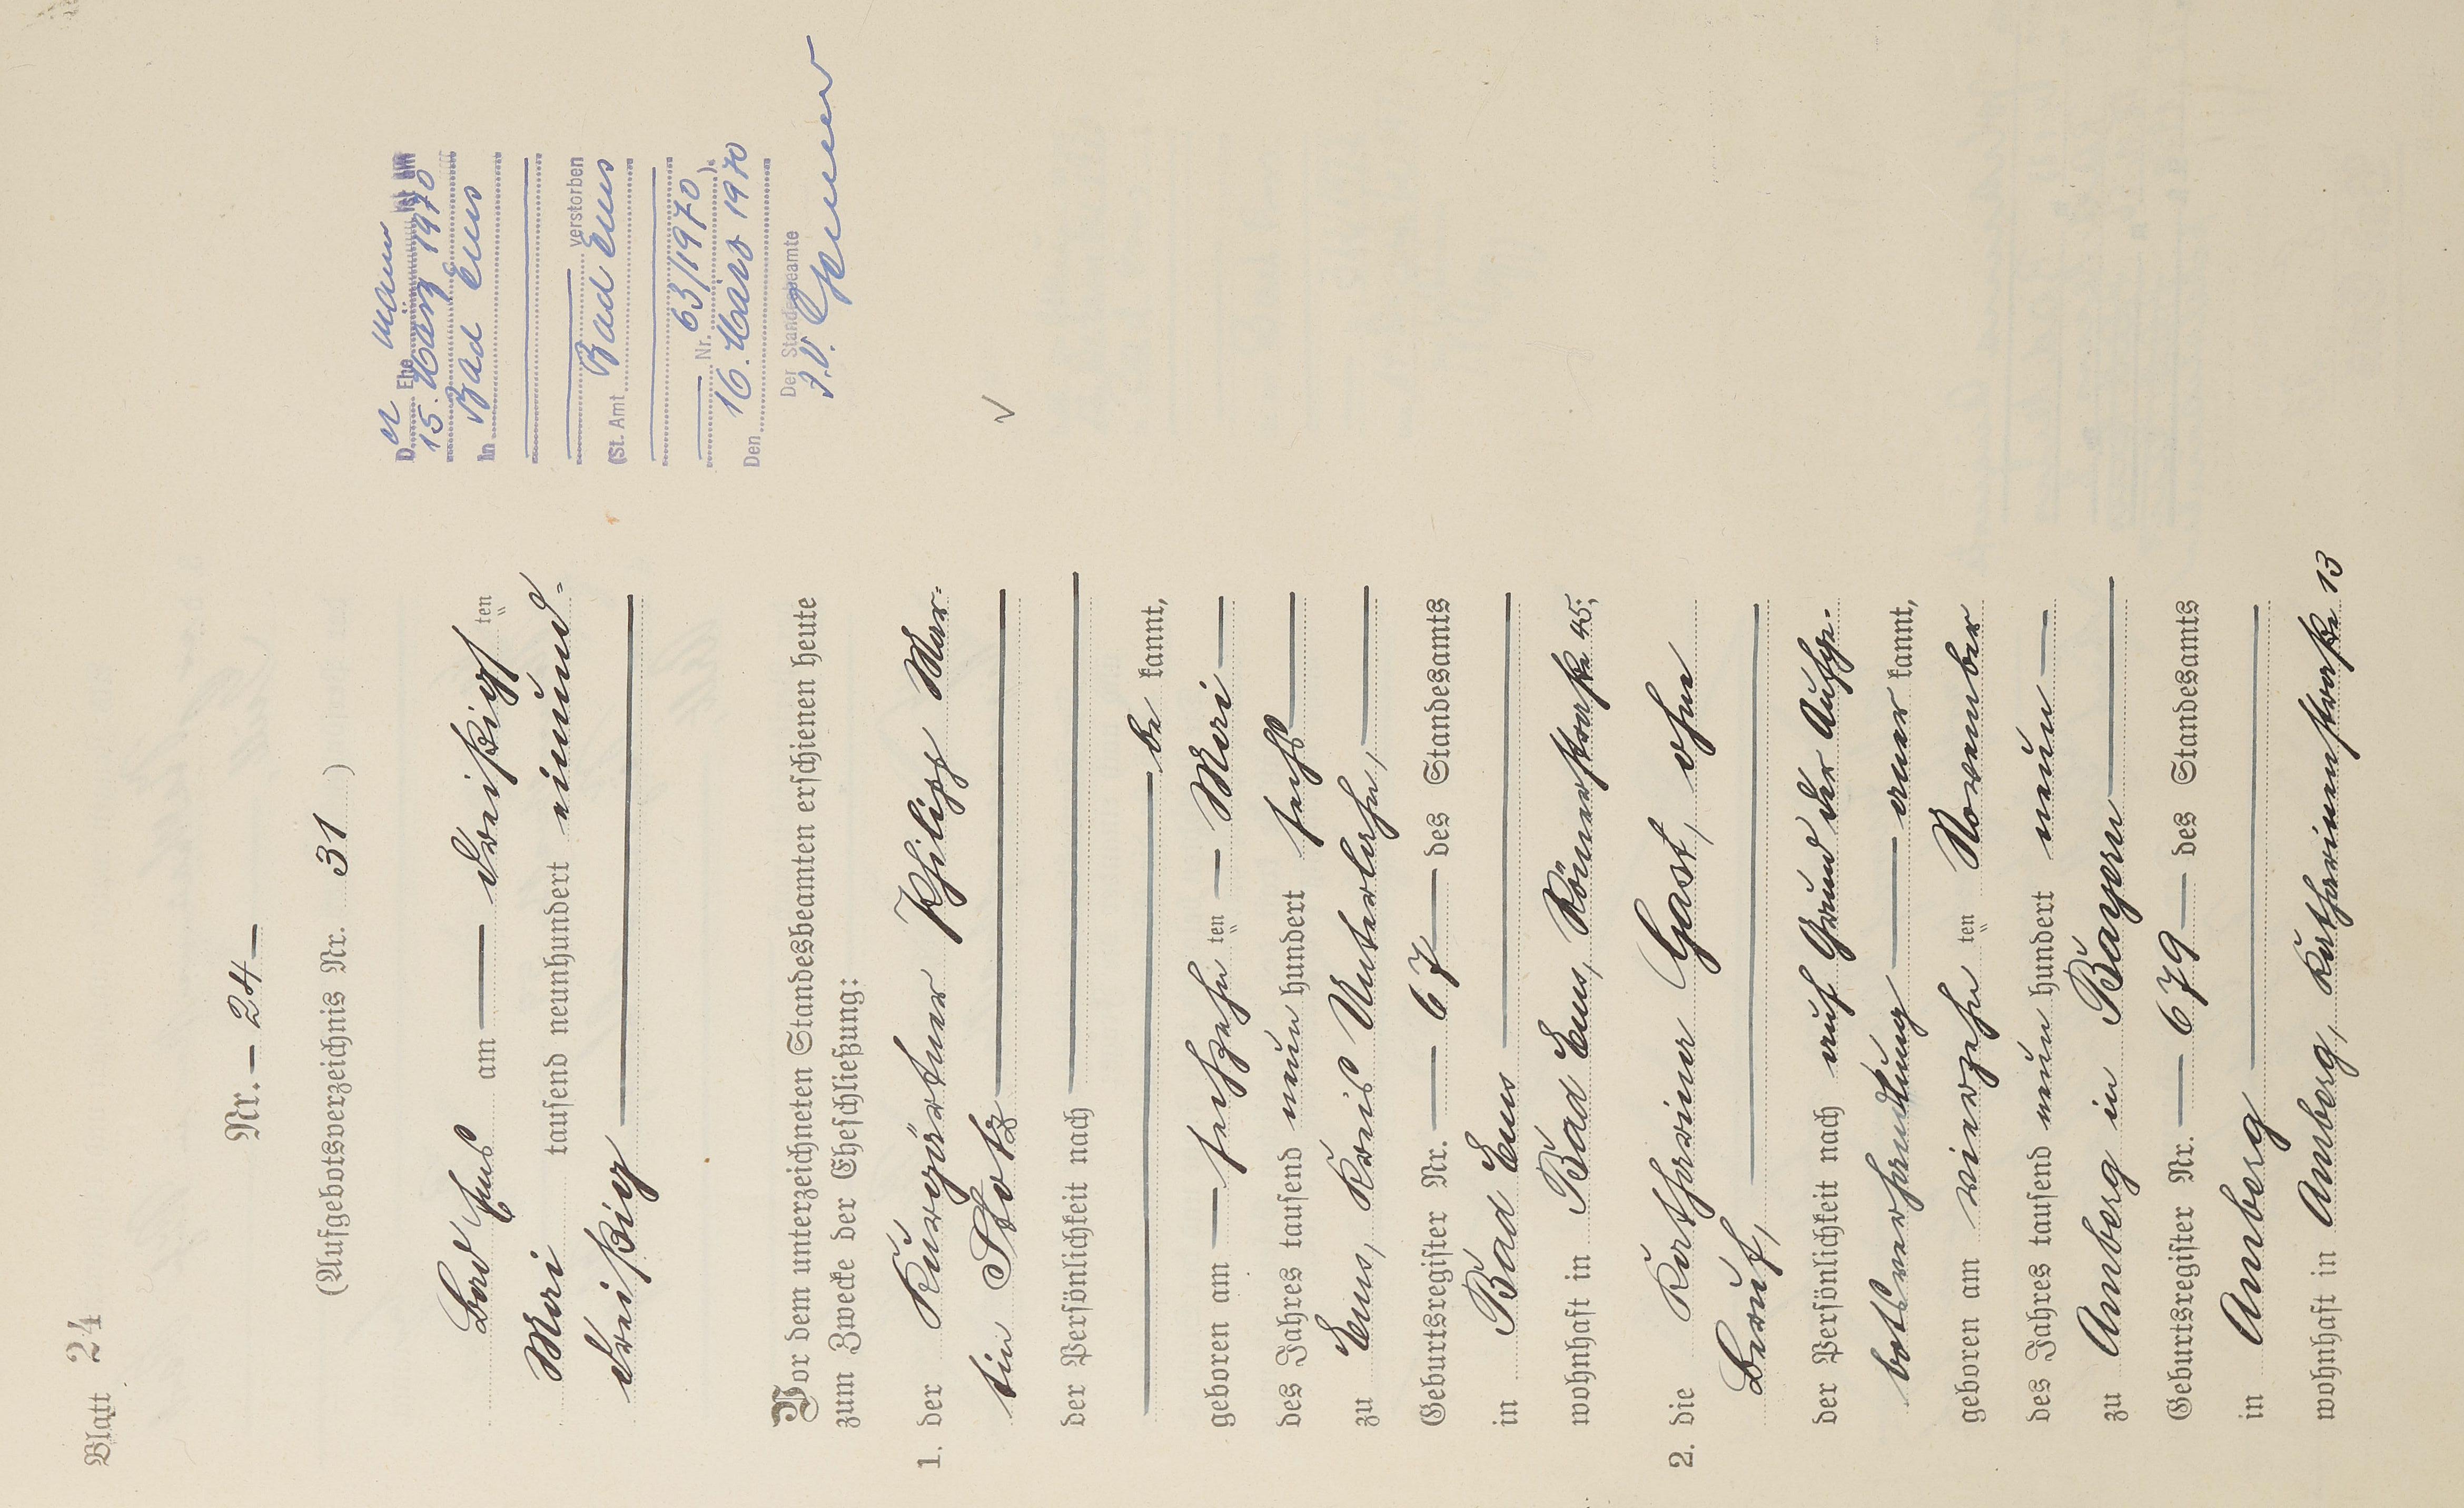 Blatt 24
Nr. — 24 —
(Aufgebotsverzeichnis Nr. 31)
Bad Ems am — dreißigsten
Mai tausend neunhundert einund-
dreißig
Vor dem unterzeichneten Standesbeamten erschienen heute
zum Zwecke der Eheschließung:
1. der Kurgärtner Philipp Mar-
tin Stotz
der Persönlichkeit nach
be kannt,
geboren am — sechzehnten — Mai —
des Jahres tausend neunhundert sechs
zu Ems, Kreis Unterlahn,
Geburtsregister Nr. — 67 — des Standesamts
in Bad Ems
wohnhaft in Bad Ems, Römerstraße 45;
2. die Katharina Gast, ohne
Beruf,
der Persönlichkeit nach auf Grund der Aufge-
botsverhandlung — aner kannt,
geboren am vierzehnten November
des Jahres tausend neunhundert neun —
zu Amberg in Bayern
Geburtsregister Nr. — 679 — des Standesamts
in Amberg
wohnhaft in Amberg, Katharinenstraße 13
Der Ehemann ist am
15. März 1970
in Bad Ems
verstorben
(St. Amt Bad Ems
Nr. 63/1970).
Den 16. März 1970
Der Standesbeamte
I.V.